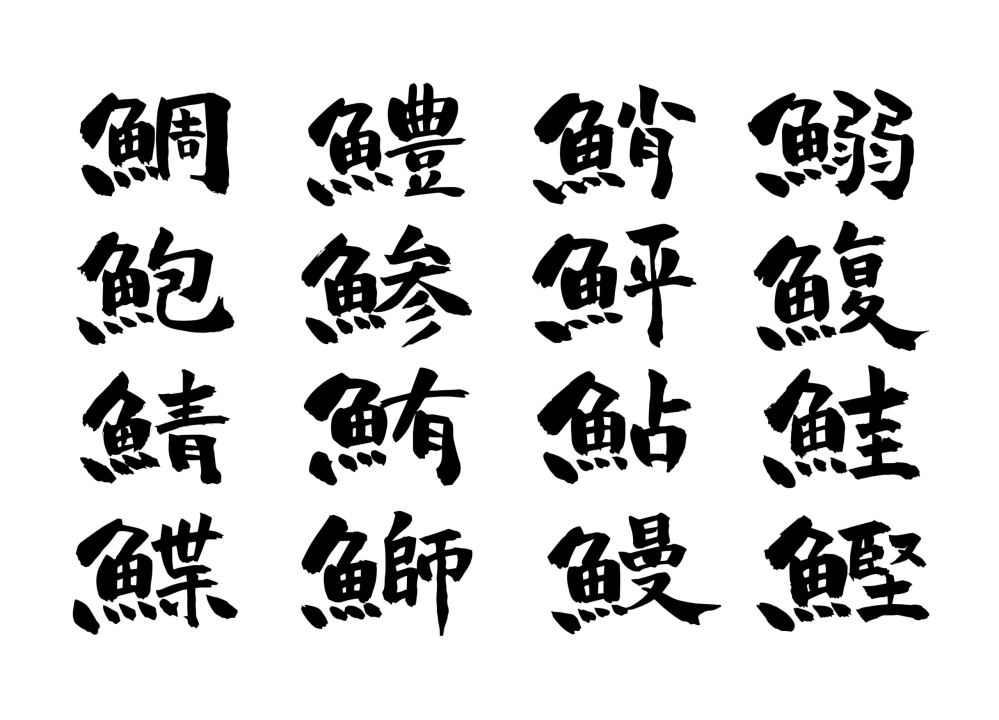 鯛 鱧 鮹 鰯
鮑 鯵 鮃 鰒
鯖 鮪 鮎 鮭
鰈 鰤 鰻 鰹